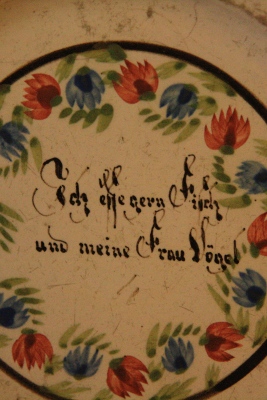 Ich esse gern Fisch
und meine Frau Vögel